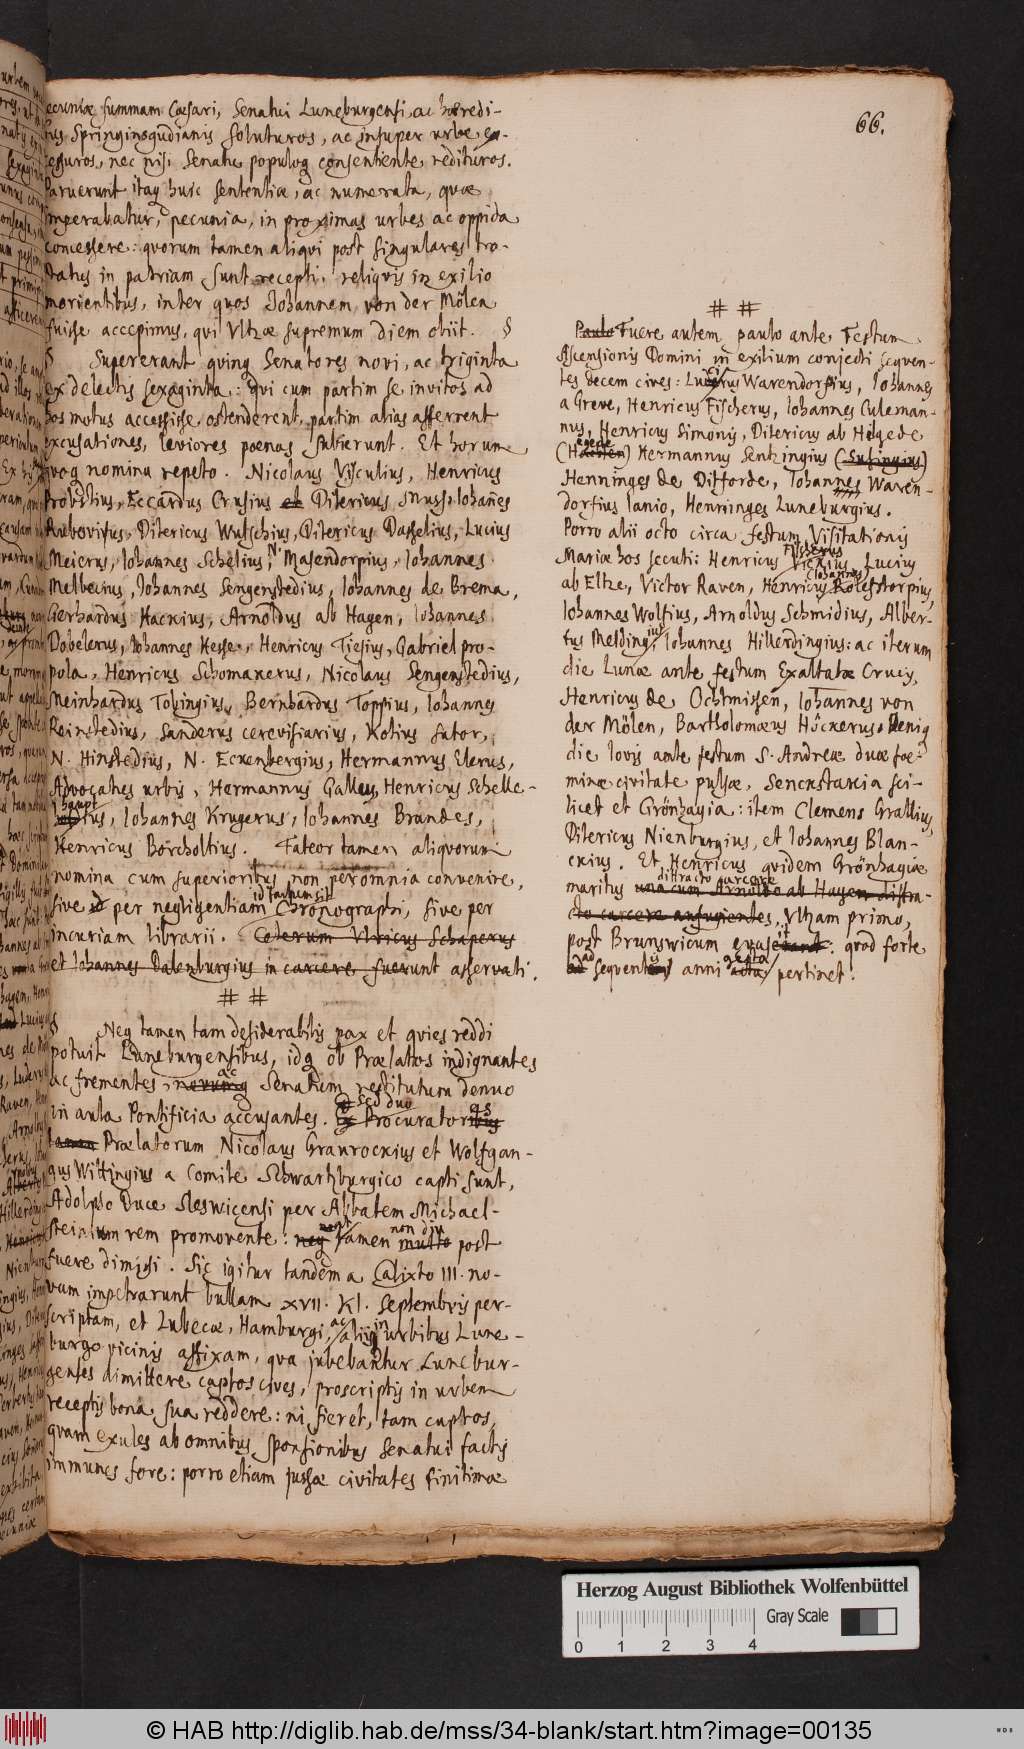 66.
pecuniæ summam Cæsari, Senatui Luneburgensi, ac hæredi-
bus Springinsgudianis soluturos, ac insuper urbe ex-
cessuros, nec nisi Senatu populoq consentiente, redituros.
Paruerunt itaq huic sententiæ, ac numerata, quæ
imperabatur, pecunia, in proximas urbes ac oppida
concessere: quorum tamen aliqui post singulares tra-
ctatus in patriam sunt recepti, reliquis in exilio
morientibus, inter quos Johannem von der Mölen
fuisse accepimus, qui Vltzæ supremum diem obiit. §
§ Supererant quinq Senatores novi, ac triginta
ex delectis sexaginta: qui cum partim se invitos ad
hos motus accessisse, ostenderent, partim alias afferrent
excusationes, leviores poenas subierunt. Et horum
quoq nomina repeto. Nicolaus Visculius, Henricus
Probstius, Eccardus Crusius et Ditericus, Iohañes
Rubovius, Ditericus Wutschius, Ditericus Dasselius, Lucius
Meierus, Iohannes Schelius, N. Masendorpius, Iohannes
Melbecius, Iohannes Sengenstedius, Iohannes de Brema,
Gerhardus Hackius, Arnoldus ab Hagen, Iohannes
Dobelerus, Iohannes Hesse, Henricus Tiesius, Gabriel pro-
pola, Henricus Schomakerus, Nicolaus Sengenstedius,
Meinhardus Tobingius, Bernhardus Toppius, Iohannes
Reinstedius, Sanderus cerevisiarius, Kotius sutor,
N. Hinstedius, N. Eckenbergius, Hermannus Elerus,
Advocatus urbis, Hermannus Gallus, Henricus Schelle-
haupt
Iohannes Krugerus, Iohannes Brandes,
Henricus Borcholtius. Fateor tamen aliquorum
nomina cum superioribus non per omnia convenire,
id tantum sit
sive id per negligentiam Chronographi, sive per
incuriam librarii. Coterum Vlricus Schaperus
et Iohannes Dalenburgius in carcere fuerunt asservati.
# #
§ Neq tamen tam desiderabilis pax et quies reddi
potuit Luneburgensibus, idq ob Prælatos indignantes
ac
ac frementes, Senatum restitutum denuo
in aula Pontificia accusantes. Sed duo Procuratores
tamen Prælatorum Nicolaus Graurockius et Wolfgan-
gus Wittingius a Comite Schwartzburgico capti sunt,
Adolpho Duce Sleswicensi per Abbatem Michael-
steinium rem promovente: neq tamen non diu multo post
fuere dimissi. Sic igitur tandem a Calixto III. no-
vam impetrarunt bullam XVII. Kl. Septembris per-
scriptam, et Lubecæ, Hamburgi, ac aliis in urbibus Lune-
burgo vicinis affixam, qua jubebantur Lunebur-
genses dimittere captos cives, proscriptis in urbem
receptis bona sua reddere: ni fieret, tam captos,
quam exules ab omnibus sponsionibus Senatui factis
immunes fore: porro etiam jussæ civitates finitimæ
# #
Paulo Fuere autem paulo ante Festum
Ascensionis Domini in exilium conjecti sequen-
tes decem cives: Warendorpius, Iohannes
a Greve, Henricus Fischerus, Iohannes Culeman-
nus, Henricus Simonis, Ditericus ab Hegede
Hermannus Sentzingius (Susingius)
Henninges de Ditforde, Iohannes Waren-
dorfius lanio, Henninges Luneburgius.
Porro alii octo circa festum Visitationis
Mariæ hos secuti: Henricus Fischerus Lucius
ab Eltze, Victor Raven, Henricus (Iohannes) Kolestorpius,
Iohannes Wolfius, Arnoldus Schmidius, Alber-
tus Meldingius, Iohannes Hillerdingius: ac iterum
die Lunæ ante festum Exaltatæ Crucis,
Henricus de Ochtmissen, Iohannes von
der Mölen, Bartholomæus Höckerus. Deniq
die Iovis ante festum S. Andreæ duæ foe-
minæ civitate pulsæ, Senckstackia sci-
licet et Grönhagia: item Clemens Grallius,
Ditericus Nienburgius, et Iohannes Blan-
ckius. Et Henricus quidem Grönhagiæ
diffracto carcere
maritus una cum Arnoldo ab Hagen diffra-
cto carcere aufugientes, Vltzam primo,
post Brunswicum evasit: quod forte
ad sequentis anni gesta pertinet.
Herzog August Bibliothek Wolfenbüttel
Gray Scale
0 1 2 3 4
© HAB http://diglib.hab.de/mss/34-blank/start.htm?image=00135